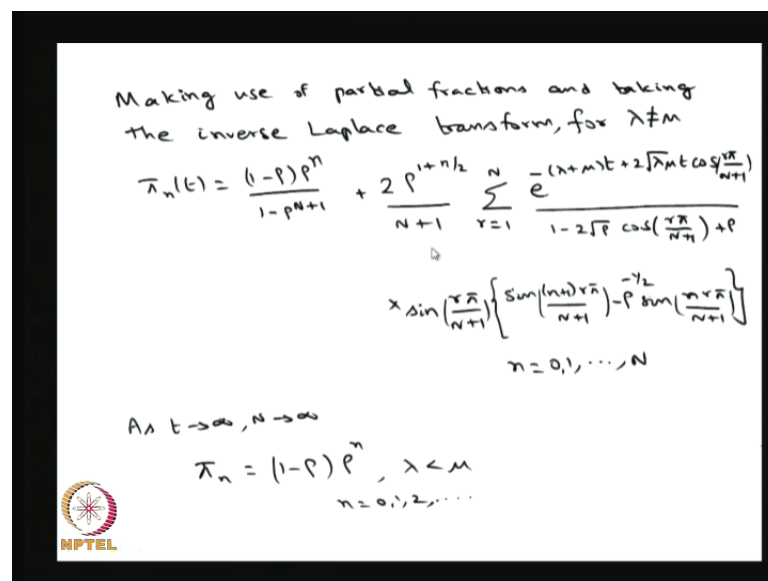 Making use of partial fractions and taking
the inverse Laplace transform, for λ≠μ
π_n(t) = (1-ρ)ρ^n / (1-ρ^{N+1}) + (2ρ^{1+n/2} / (N+1)) Σ_{r=1}^{N} e^{-(λ+μ)t+2√λμ t cos(rπ/(N+1))} / (1-2√ρ cos(rπ/(N+1))+ρ)
× sin(rπ/(N+1)) {sin((n+1)rπ/(N+1)) - ρ^{-1/2} sin(nrπ/(N+1))}
n=0,1,...,N
As t→∞, N→∞
π_n = (1-ρ)ρ^n, λ<μ
n=0,1,2,....
NPTEL